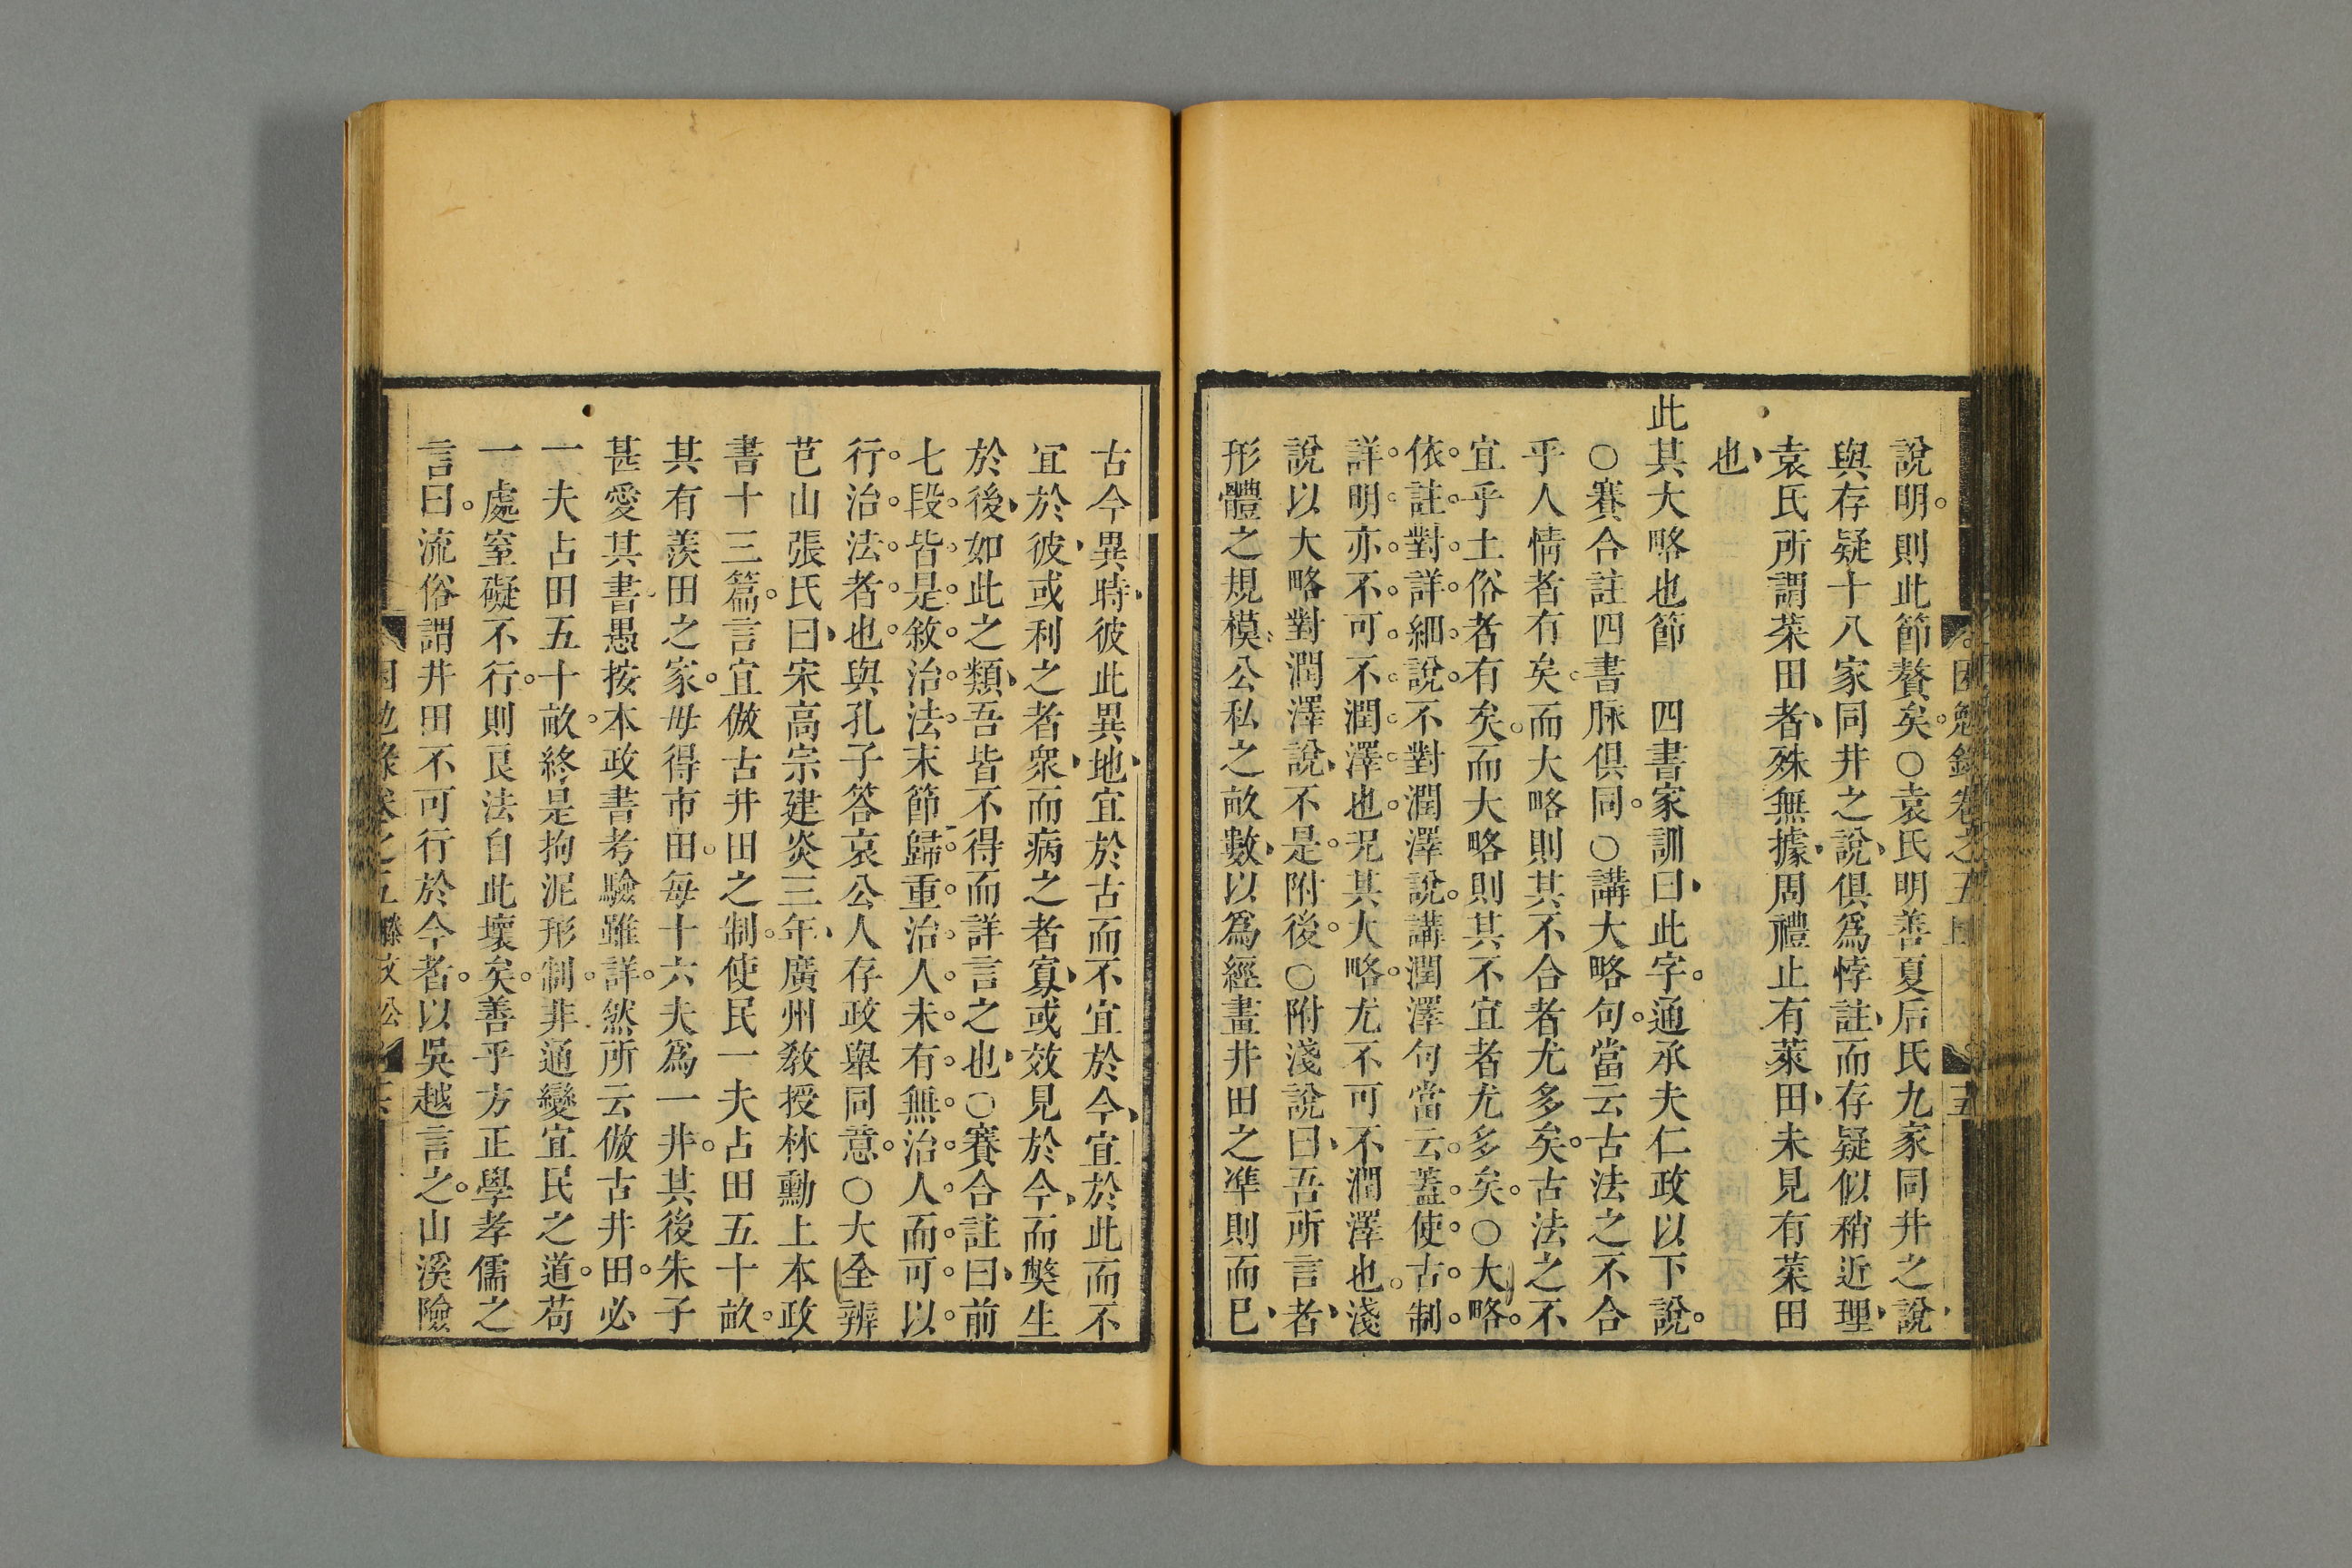 說明。則此節贅矣。○袁氏明善夏后氏九家同井之說、
與存疑十八家同井之說、俱爲悖註、而存疑似稍近理、
袁氏所謂菜田者、殊無據、周禮止有萊田、未見有菜田
也、
此其大略也節　四書家訓曰、此字。通承夫仁政以下說。
○賽合註四書脉俱同。○講大略句。當云古法之不合
乎人情者有矣。而大略則其不合者尤多矣。古法之不
宜乎土俗者有矣。而大略則其不宜者尤多矣。○大略。
依。註。對。詳。細。說。不對潤澤說。講潤澤句當云。蓋。使。古。制。
詳。明。亦。不。可。不。潤。澤。也。況其大略。尤不可不潤澤也。淺
說以大略對潤澤說、不是。附後。○附淺說曰、吾所言者、
形體之規模、公私之畝數、以爲經畫井田之準則而已、
古今異時、彼此異地、宜於古而不宜於今、宜於此而不
宜於彼、或利之者衆、而病之者寡、或效見於今、而獘生
於後、如此之類、吾皆不得而詳言之也、○賽合註曰、前
七。段。皆。是。敘。治。法。末節歸。重。治。人。未。有。無。治。人。而。可。以。
行。治。法。者。也。與孔子答哀公人存政舉同意。○大全辨
芑山張氏曰、宋高宗建炎三年、廣州敎授林勳上本政
書十三篇。言宜倣古井田之制。使民一夫占田五十畝。
其有羨田之家。毋得市田。每十六夫爲一井。其後朱子
甚愛其書。愚按本政書考驗雖詳。然所云倣古井田。必
一夫占田五十畝。終是拘泥形制。非通變宜民之道。苟
一處窒礙不行。則良法自此壞矣。善乎方正學孝儒之
言曰。流俗謂井田不可行於今者。以吳越言之。山溪險